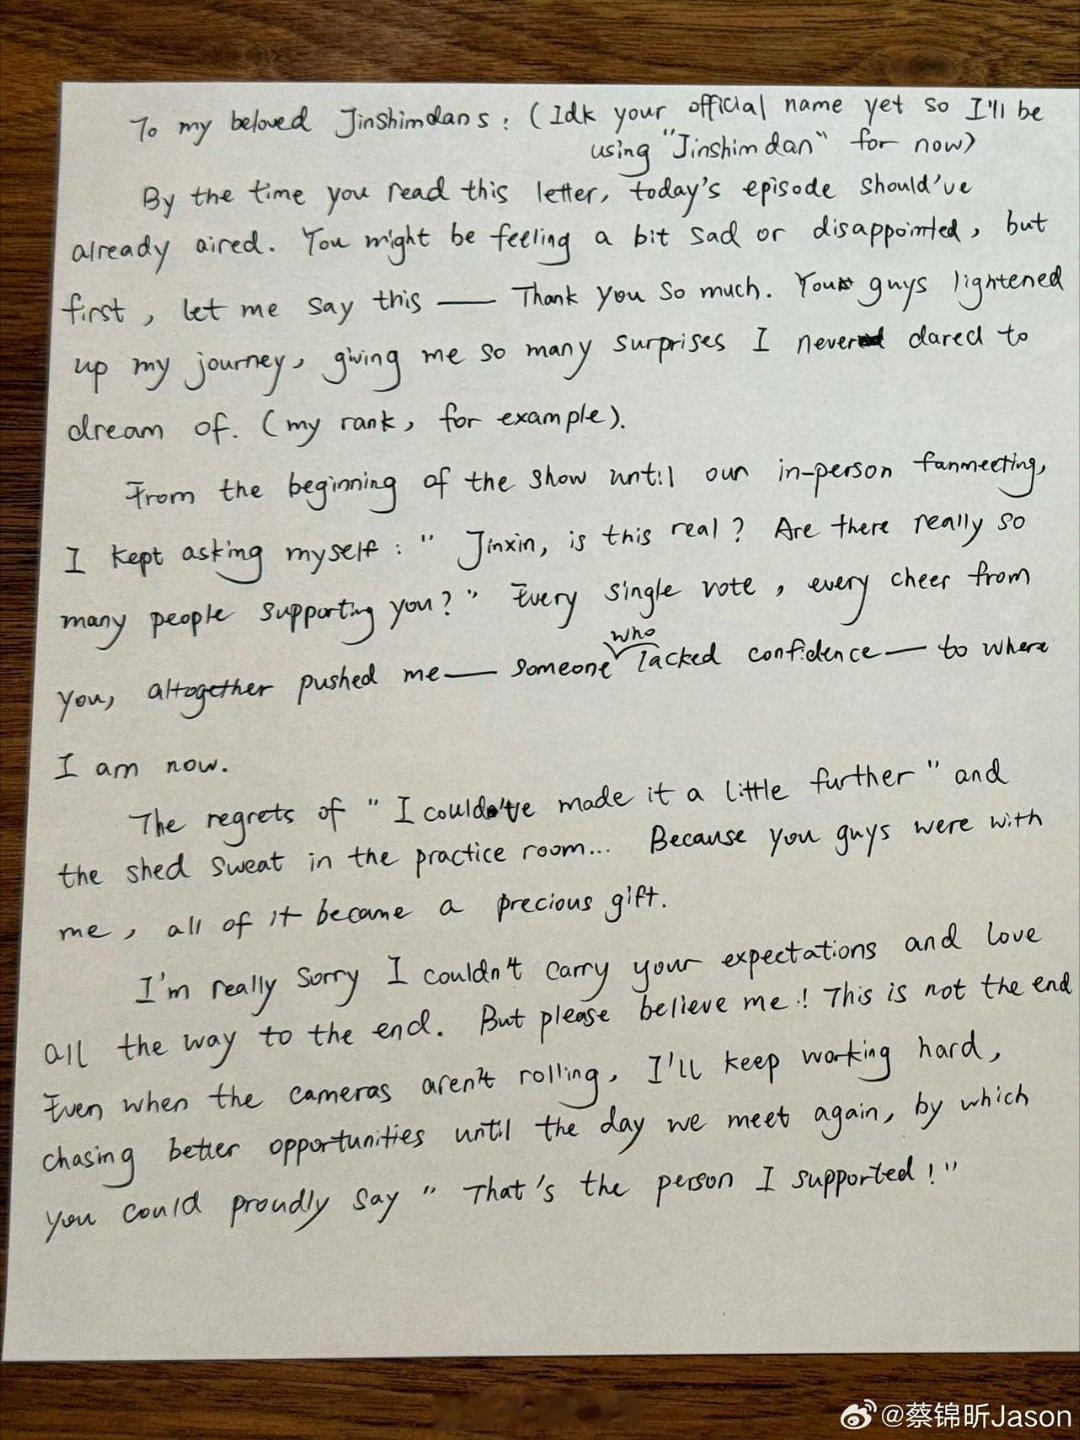 To my beloved Jinshimdans: (Idk your official name yet so I'll be
using "Jinshimdan" for now)
By the time you read this letter, today's episode should've
already aired. You might be feeling a bit sad or disappointed, but
first, let me say this — Thank you so much. You guys lightened
up my journey, giving me so many surprises I never dared to
dream of. (my rank, for example).
From the beginning of the show until our in-person fanmeeting,
I kept asking myself: "Jinxin, is this real? Are there really so
many people supporting you?" Every single vote, every cheer from
you, altogether pushed me — someone who lacked confidence — to where
I am now.
The regrets of "I could've made it a little further" and
the shed sweat in the practice room... Because you guys were with
me, all of it became a precious gift.
I'm really sorry I couldn't carry your expectations and love
all the way to the end. But please believe me! This is not the end
Even when the cameras aren't rolling, I'll keep working hard,
chasing better opportunities until the day we meet again, by which
you could proudly say "That's the person I supported!"
@蔡锦昕Jason